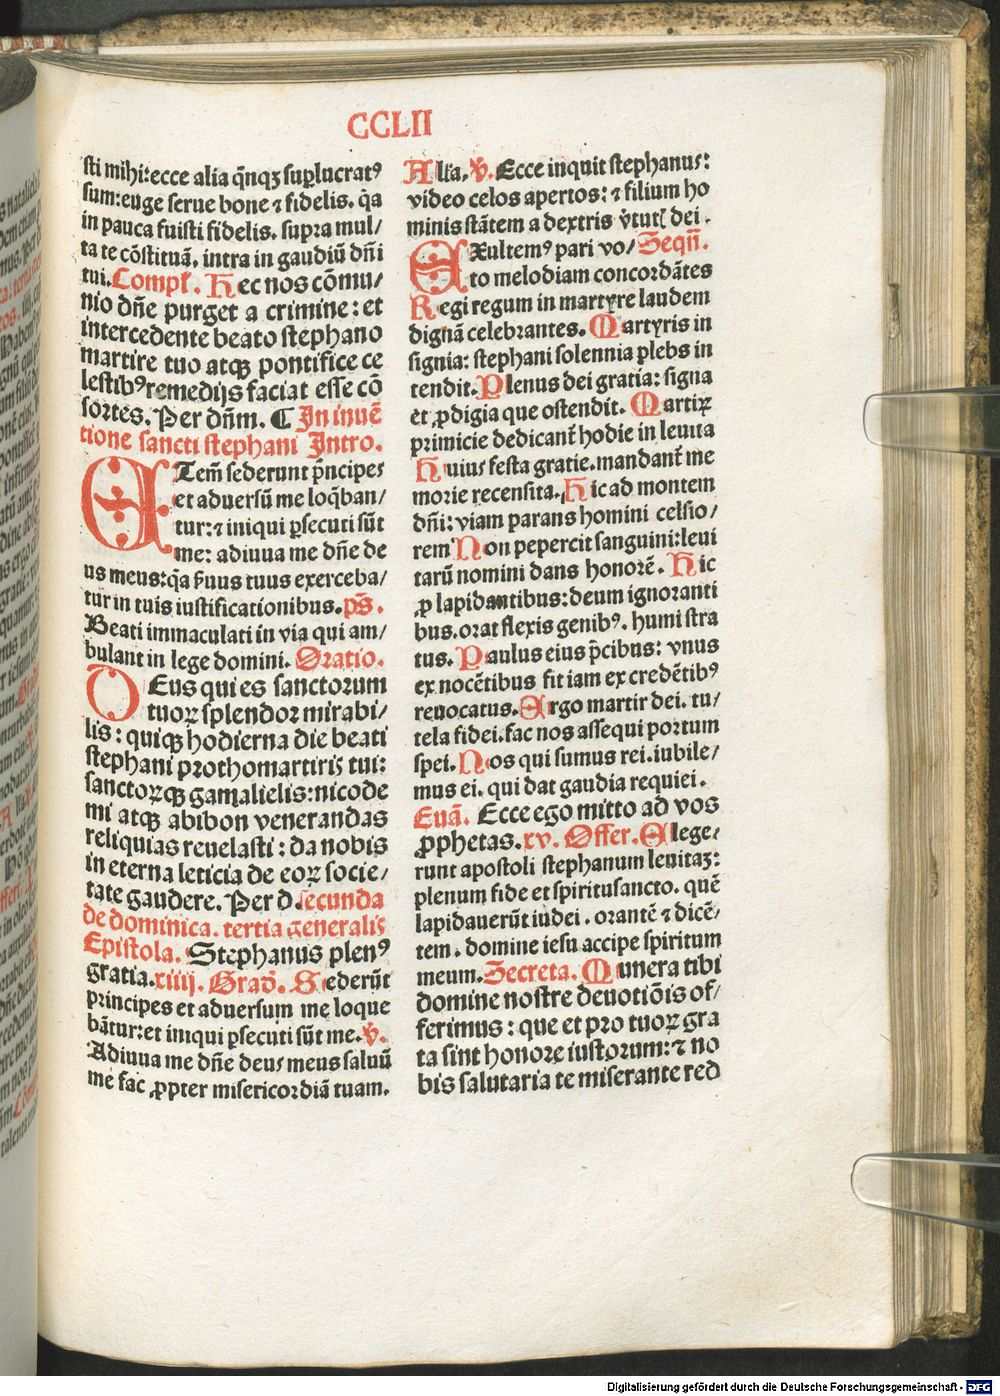 CCLII
sti mihi:ecce alia q̄nqꝫ suꝑlucratꝰ
sum:euge serue bone ⁊ fidelis. q̄a
in pauca fuisti fidelis. supra mul/
ta te cōstituā. intra in gaudiū dn̄i
tui. Compl̄. Hec nos cōmu/
nio dn̄e purget a crimine: et
intercedente beato stephano
martire tuo atqꝫ pontifice ce
lestibꝰ remedijs faciat esse cō
sortes. Per dn̄m. ¶ In inuē
tione sancti stephani Intro.
ETem̄ sederunt p̄ncipes
et aduersū me loq̄ban/
tur:⁊ iniqui ꝑsecuti sūt
me: adiuua me dn̄e de
us meus:q̄a ẜuus tuus exerceba/
tur in tuis iustificationibus. ps̄.
Beati immaculati in via qui am/
bulant in lege domini. Oratio.
DEus qui es sanctorum
tuoꝝ splendor mirabi/
lis: quiqꝫ hodierna die beati
stephani prothomartiris tui:
sanctorūqꝫ gamalielis:nicode
mi atqꝫ abibon venerandas
reliquias reuelasti: da nobis
in eterna leticia de eoꝝ socie/
tate gaudere. Per d. secunda
de dominica. tertia generalis
Epistola. Stephanus plenꝰ
gratia. xiiij. Grad̄. Sederūt
principes et aduersum me loque
bātur:et iniqui ꝑsecuti sūt me. ℣.
Adiuua me dn̄e deus meus saluū
me fac ꝓpter misericordiā tuam.
Alīa. ℣. Ecce inquit stephanus:
video celos apertos: ⁊ filium ho
minis stātem a dextris v̓tutꝭ dei.
EXultemꝰ pari vo/ Seqn̄.
to melodiam concordātes
Regi regum in martyre laudem
dignā celebrantes. Martyris in
signia: stephani solennia plebs in
tendit. Plenus dei gratia: signa
et ꝓdigia que ostendit. Martiꝝ
primicie dedicant̄ hodie in leuita
Huius festa gratie. mandant̄ me
morie recensita. Hic ad montem
dn̄i: viam parans homini celsio/
rem Non pepercit sanguini:leui
tarū nomini dans honorē. Hic
ꝓ lapidantibus: deum ignoranti
bus. orat flexis genibꝰ. humi stra
tus. Paulus eius p̄cibus: vnus
ex nocētibus fit iam ex credētibꝰ
reuocatus. Ergo martir dei. tu/
tela fidei. fac nos assequi portum
spei. Nos qui sumus rei. iubile/
mus ei. qui dat gaudia requiei.
Euā. Ecce ego mitto ad vos
ꝓphetas. xv. Offer. Elege/
runt apostoli stephanum leuitaꝫ:
plenum fide et spiritusancto. quē
lapidauerūt iudei. orantē ⁊ dicē/
tem. domine iesu accipe spiritum
meum. Secreta. Munera tibi
domine nostre deuotiōis of/
ferimus: que et pro tuoꝝ gra
ta sint honore iustorum: ⁊ no
bis salutaria te miserante red
Digitalisierung gefördert durch die Deutsche Forschungsgemeinschaft - DFG